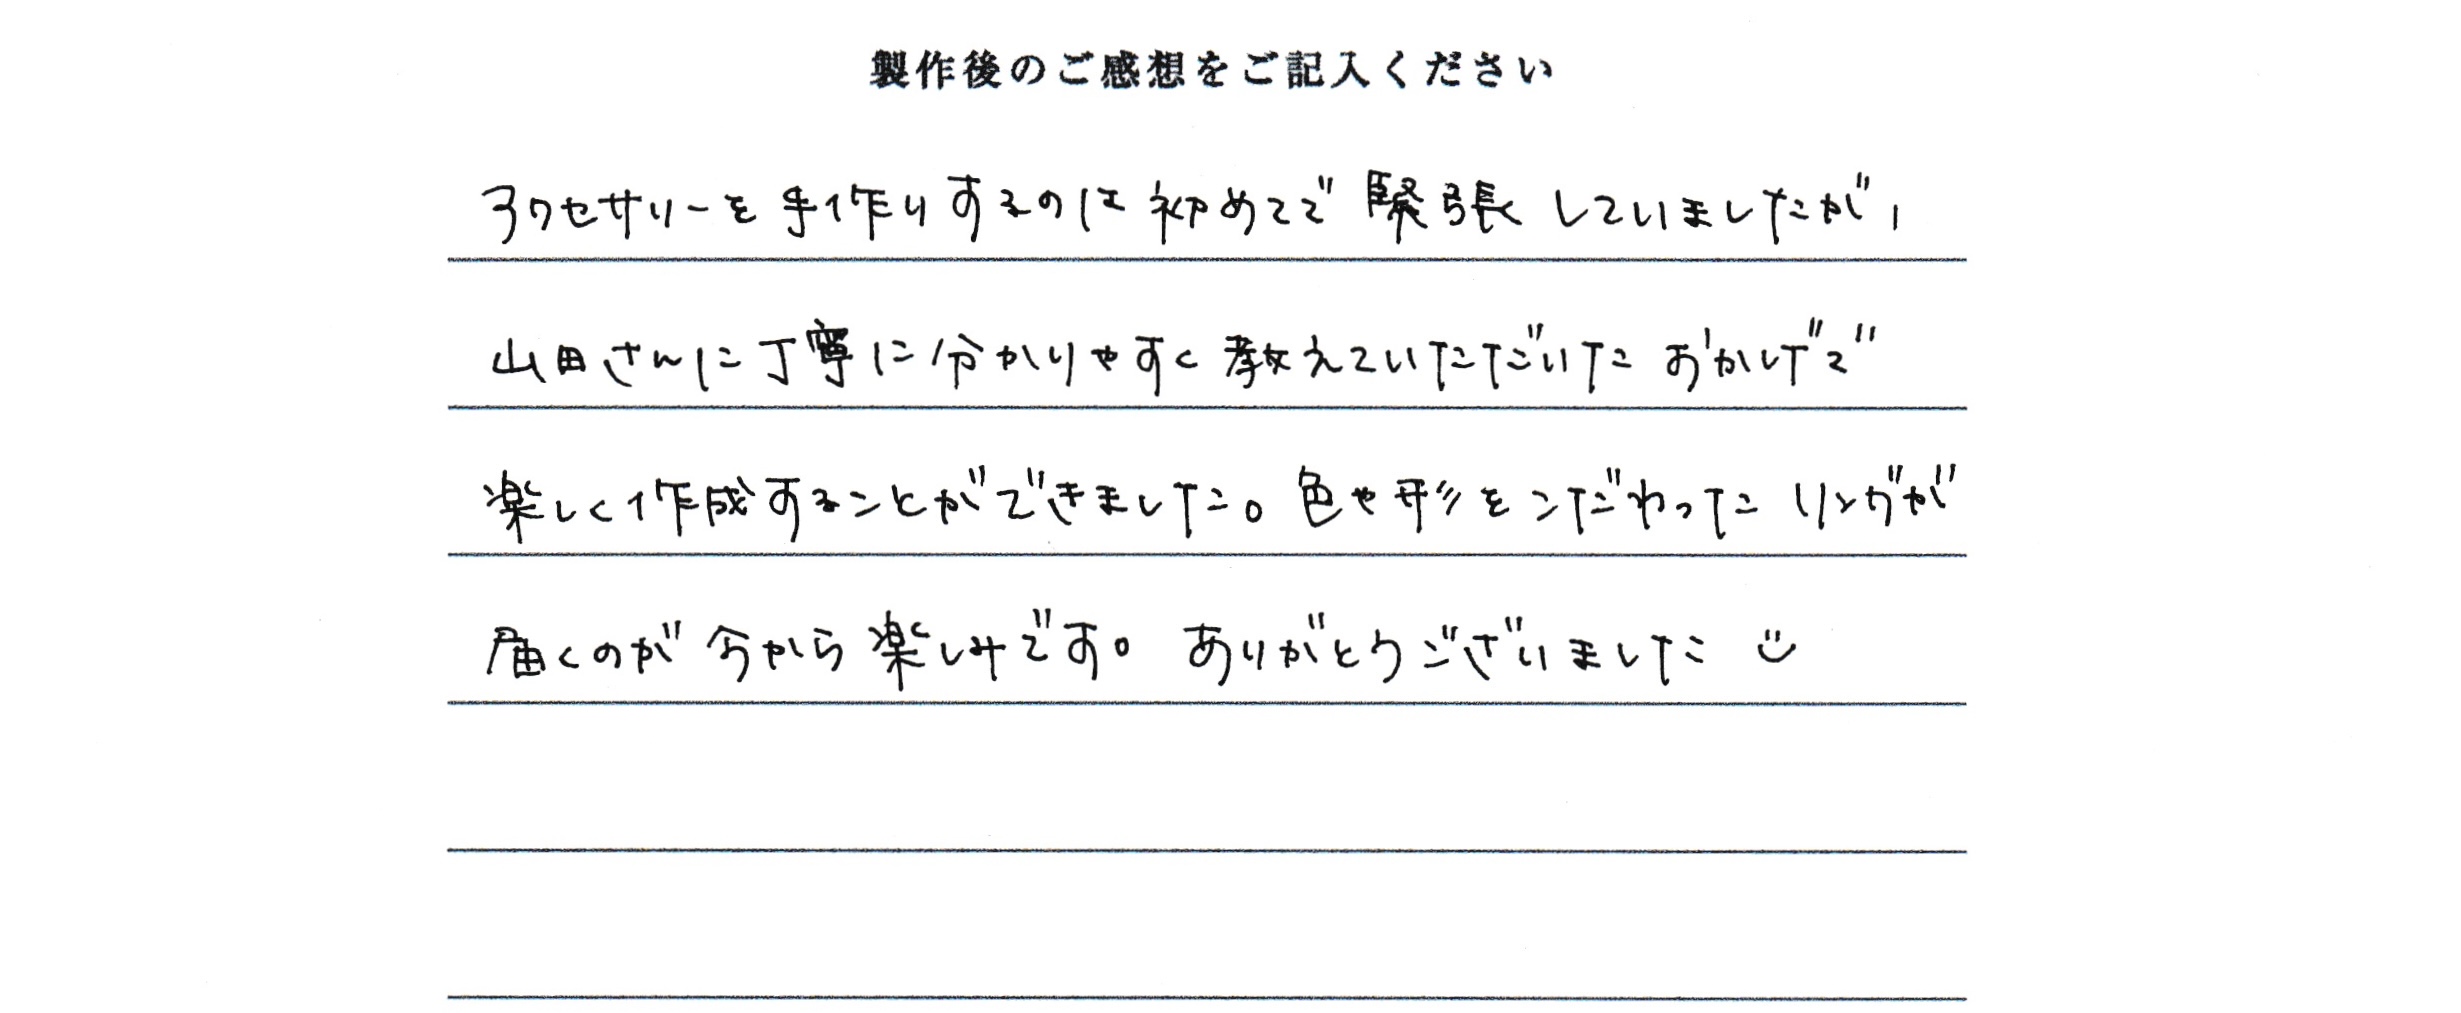 製作後のご感想をご記入ください
アクセサリーを手作りするのは初めてで緊張していましたが、
山田さんに丁寧に分かりやすく教えていただいたおかげで
楽しく作成することができました。色や形をこだわったリングが
届くのが今から楽しみです。ありがとうございました